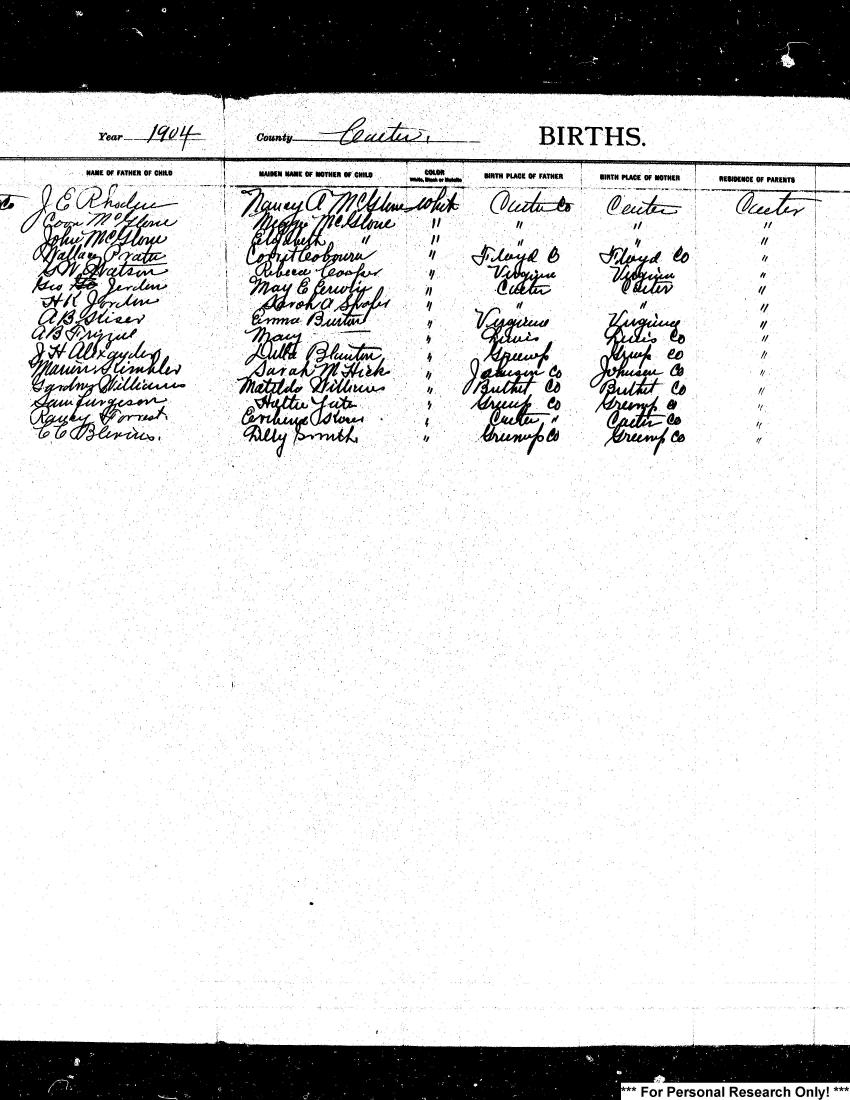 Year 1904 County Carter. BIRTHS.
NAME OF FATHER OF CHILD MAIDEN NAME OF MOTHER OF CHILD COLOR White, Black or Mulatto BIRTH PLACE OF FATHER BIRTH PLACE OF MOTHER RESIDENCE OF PARENTS
Co J E Rhoden Nancy A McGlone Whit Carter Co Carter Carter
Coon McGlone McGlone " " " "
John McGlone Elizabeth " " " " "
Wallace Prater " Floyd Co Floyd Co "
G W Watson Rebeca Cooper " Virginia Virginia "
Geo Jorden May E " Carter Carter "
H K Jorden Sarah A " " " "
A B Stiser Emma Burton " Virginia Virginia "
A B Frizzue Mary " Lewis Lewis Co "
J H Alexander Della Blanton " Greenup Grup Co "
Marion Stimbler Sarah M Hick " Johnson Co Johnson Co "
Williams Matilda Williams " Bathet Co Bathet Co "
Sam Furgeson Hattie Tate " Greenup Co Greenup Co "
Raney Forrest " Carter " Carter Co "
C C Blevins. Delly Smith " Greenup Co Greenup Co "
*** For Personal Research Only! ***